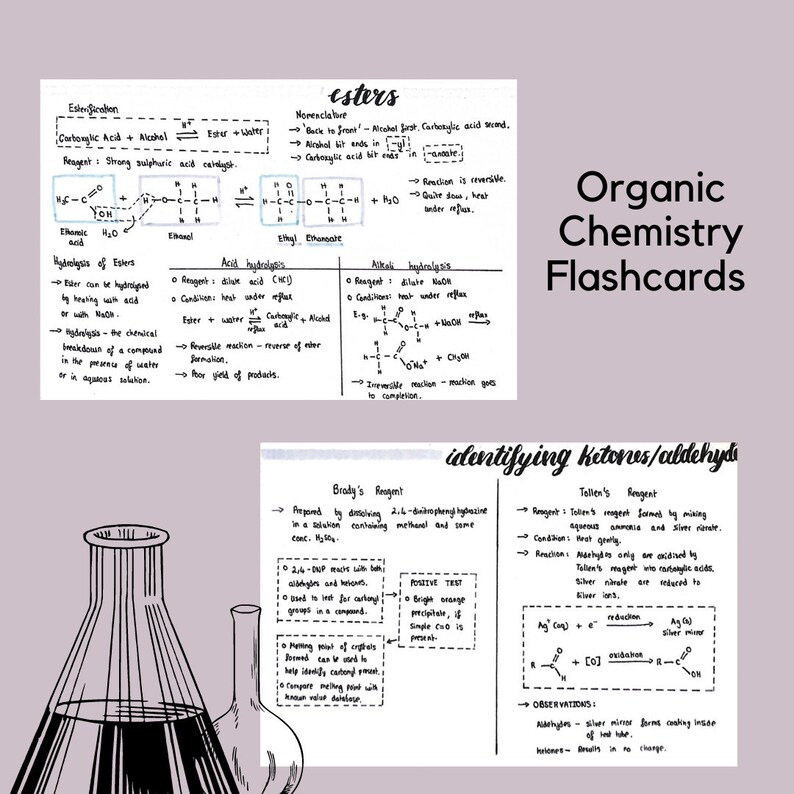 Organic
Chemistry
Flashcards
esters
Esterification
Carboxylic Acid + Alcohol ⇌ Ester + Water
H⁺
Reagent : Strong sulphuric acid catalyst.
Nomenclature
→ 'Back to front' - Alcohol first, Carboxylic acid second.
→ Alcohol bit ends in -yl
→ Carboxylic acid bit ends in -anoate.
H₃C-C
O
OH
+
H-O-C-C-H
H H
H H
H⁺
⇌
H-C-C-O-C-C-H
H O H H
H H H
+ H₂O
Ethanoic
acid
H₂O
Ethanol
Ethyl Ethanoate
→ Reaction is reversible.
→ Quite slow, heat
under reflux.
Hydrolysis of Esters
→ Ester can be hydrolysed
by heating with acid
or with NaOH.
→ Hydrolysis - the chemical
breakdown of a compound
in the presence of water
or in aqueous solution.
Acid hydrolysis
o Reagent : dilute acid (HCl)
o Condition: heat under reflux
Ester + water ⇌ Carboxylic acid + Alcohol
H⁺
reflux
→ Reversible reaction - reverse of ester
formation.
→ Poor yield of products.
Alkali hydrolysis
o Reagent : dilute NaOH
o Conditions: heat under reflux
E.g. H-C-C
H
H
O
O-C-H
H
H
+ NaOH
reflux
→
H-C-C
H
H
O
O⁻Na⁺
+ CH₃OH
→ Irreversible reaction - reaction goes
to completion.
identifying ketones/aldehyde
Brady's Reagent
→ Prepared by dissolving 2,4-dinitrophenylhydrazine
in a solution containing methanol and some
conc. H₂SO₄.
o 2,4-DNP reacts with both
aldehydes and ketones.
o Used to test for carbonyl
groups in a compound.
POSITIVE TEST
o Bright orange
precipitate, if
simple C=O is
present.
o Melting point of crystals
formed can be used to
help identify carbonyl present.
o Compare melting point with
known value database.
Tollen's Reagent
→ Reagent : Tollen's reagent formed by mixing
aqueous ammonia and silver nitrate.
→ Condition: Heat gently.
→ Reaction : Aldehydes only are oxidised by
Tollen's reagent into carboxylic acids.
Silver nitrate are reduced to
silver ions.
Ag⁺(aq) + e⁻ reduction → Ag(s)
silver mirror
R-C
O
H
+ [O] oxidation →
R-C
O
OH
→ OBSERVATIONS :
Aldehydes - silver mirror forms coating inside
of test tube.
Ketones - Results in no change.